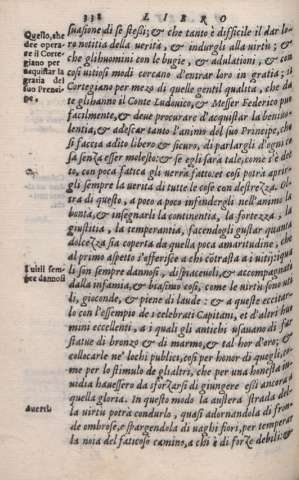 338 LIBRO
Quello, che
dee opera-
re il Corte-
giano per
acquistar la
gratia del
suo Prenci-
pe.
suasione di se stessi; & che tanto è difficile il dar lo-
ro notitia della verità, & indurgli alla virtù; &
che gli huomini con le bugie, & adulationi, & con
cosi uitiosi modi cercano d'entrar loro in gratia; il
Cortegiano per mezo di quelle gentil qualità, che da
te gli hanno il Conte Ludouico, & Messer Federico puo
facilmente, & deue procurare d'acquistar la beniuo-
lentia, & adescar tanto l'animo del suo Principe, che
si faccia adito libero & sicuro, di parlargli d'ogni co
sa senza esser molesto: & se egli sarà tale, come s'è det
to, con poca fatica gli uerrà fatto: et cosi potrà aprir-
gli sempre la uerità di tutte le cose con destrezza. Ol-
tra di questo, a poco a poco infondergli nell'animo la
bontà, & insegnarli la continentia, la fortezza, la
giustitia, la temperantia, facendogli gustar quanta
dolcezza sia coperta da quella poca amaritudine, che
al primo aspetto s'offerisce a chi cōtrasta a i uitij: iqua
I uitij sem-
pre dannosi
li son sempre dannosi, dispiaceuoli, & accompagnati
dalla infamia, & biasimo cosi, come le uirtù sono uti
li, gioconde, & piene di laude: & a queste eccitar-
lo con l'essempio de i celebrati Capitani, et d'altri huo
mini eccellenti, a i quali gli antichi usauano di far
statue di bronzo & di marmo, & tal hor d'oro; &
collocarle ne' lochi publici, cosi per honor di quegli, co-
me per lo stimulo de gli altri, che per una honesta in-
uidia hauessero da sforzarsi di giungere essi ancora a
quella gloria. In questo modo la austera strada del-
Auerti.
la uirtù potrà condurlo, quasi adornandola di fron-
de ombrose, e spargendola di uaghi fiori, per temperar
la noia del faticoso camino, a chi è di forze debili: &